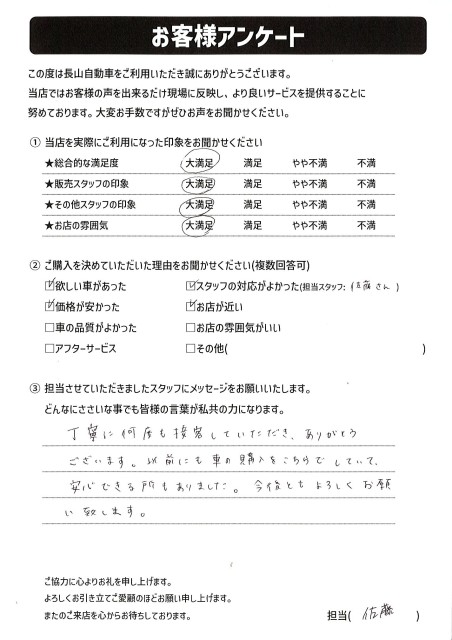 お客様アンケート
この度は長山自動車をご利用いただき誠にありがとうございます。
当店ではお客様の声を出来るだけ現場に反映し、より良いサービスを提供することに
努めております。大変お手数ですがぜひお声をお聞かせください。
① 当店を実際にご利用になった印象をお聞かせください
★総合的な満足度 大満足 満足 やや不満 不満
★販売スタッフの印象 大満足 満足 やや不満 不満
★その他スタッフの印象 大満足 満足 やや不満 不満
★お店の雰囲気 大満足 満足 やや不満 不満
② ご購入を決めていただいた理由をお聞かせください(複数回答可)
☑欲しい車があった ☑スタッフの対応がよかった(担当スタッフ: 佐藤さん )
☑価格が安かった ☑お店が近い
☐車の品質がよかった ☐お店の雰囲気がいい
☐アフターサービス ☐その他( )
③ 担当させていただきましたスタッフにメッセージをお願いいたします。
どんなにささいな事でも皆様の言葉が私共の力になります。
丁寧に何度も接客していただき、ありがとう
ございます。以前にも車の購入をこちらでしていて、
安心できる所もありました。今後ともよろしくお願
い致します。
ご協力に心よりお礼を申し上げます。
よろしくお引き立てご愛顧のほどお願い申し上げます。
またのご来店を心からお待ちしております。
担当( 佐藤 )